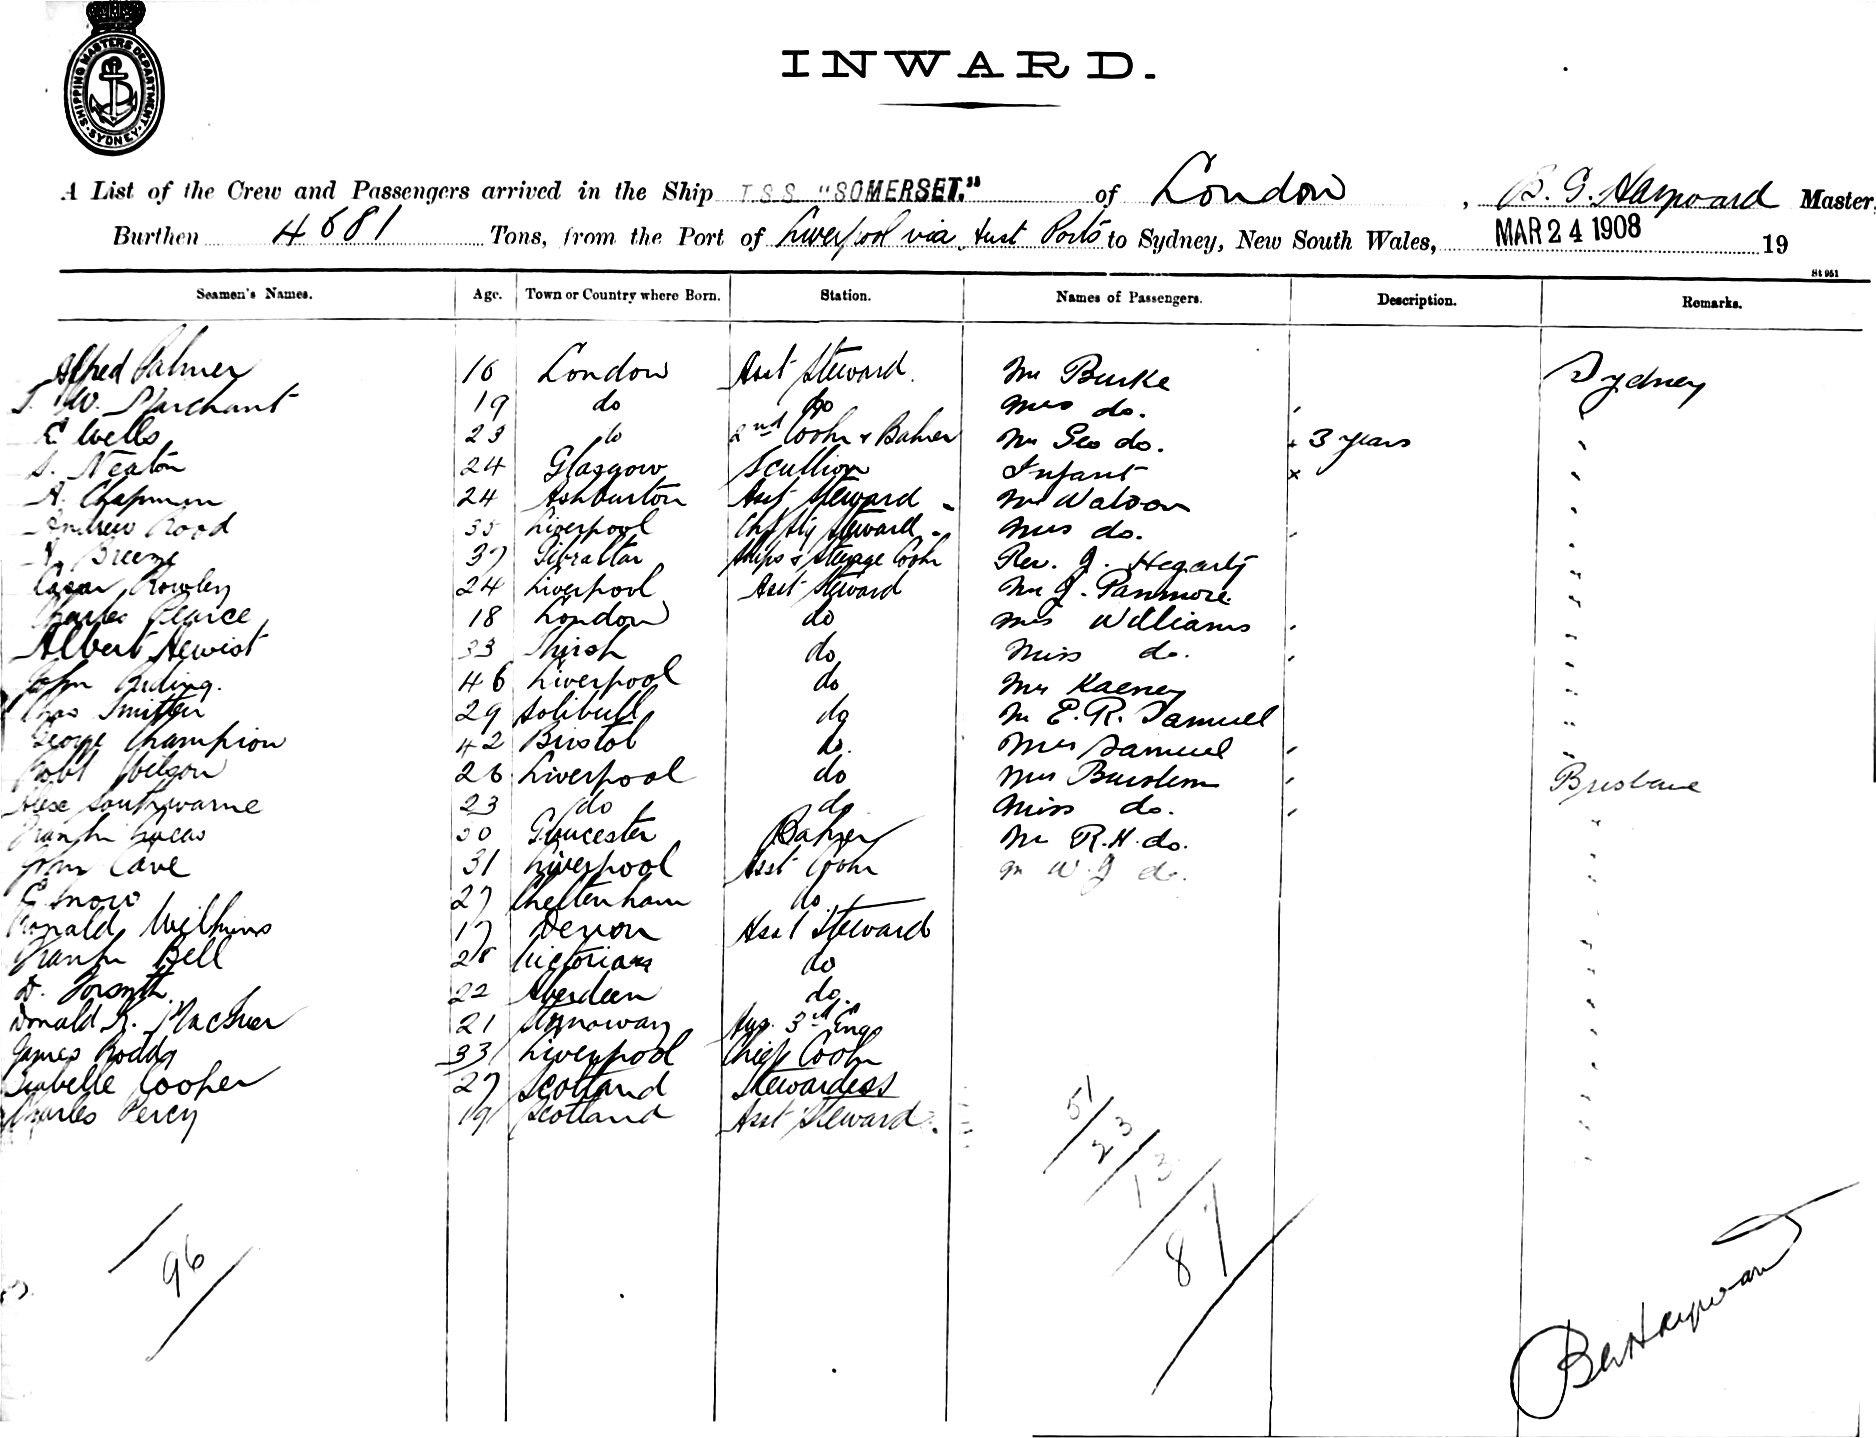 SHIPPING MASTERS DEPARTMENT. SYDNEY
INWARD.
A List of the Crew and Passengers arrived in the Ship T.S.S "SOMERSET." of London, B. G. Hayward Master,
Burthen 4681 Tons, from the Port of Liverpool via Aust Ports to Sydney, New South Wales, MAR 24 1908 19
St 951
Seamen's Names. Age. Town or Country where Born. Station. Names of Passengers. Description. Remarks.
Alfred Palmer 16 London Asst Steward. Mr Burke Sydney
J. W. Marchant 19 do do Mrs do.
E Wells 23 do 2nd Cook & Baker Mr Geo do. 3 years
S. Neaton 24 Glasgow Scullion Infant x
A. Chapman 24 Ashburton Asst Steward Mr Watson
Andrew Rood 35 Liverpool Steward Mrs do.
Breeme 37 Gibraltar Ships & Steerage Cook Rev. J. Hegarty
Rowley 24 Liverpool Asst Steward Mr J. Panmore.
Charles Pearce 18 London do Mrs Williams
Albert Hewist 33 Thirsk do Miss do.
John 46 Liverpool do Mr Kaeney
Chas Smitten 29 Solihull do Mr E. R. Samuel
George Champion 42 Bristol do. Mrs Samuel
Robt Wilson 26 Liverpool do Mrs Burslem Brisbane
Alex Southwarne 23 do do Miss do.
Frank Lucas 30 Gloucester Baker Mr R. H. do.
John Cave 31 Liverpool Asst Cook Mr W J do.
E Snow 27 Cheltenham do.
Ronald Wilkins 17 Devon Asst Steward
Frank Bell 28 Victoria do
D. Forsyth 22 Aberdeen do.
Donald K. MacIver 21 Stornoway 3rd Eng
James Roddy 33 Liverpool Chief Cook
Isabelle Cooper 27 Scotland Stewardess
Charles Percy 19 Scotland Asst Steward.
51
23
13
87
96
B G Hayward